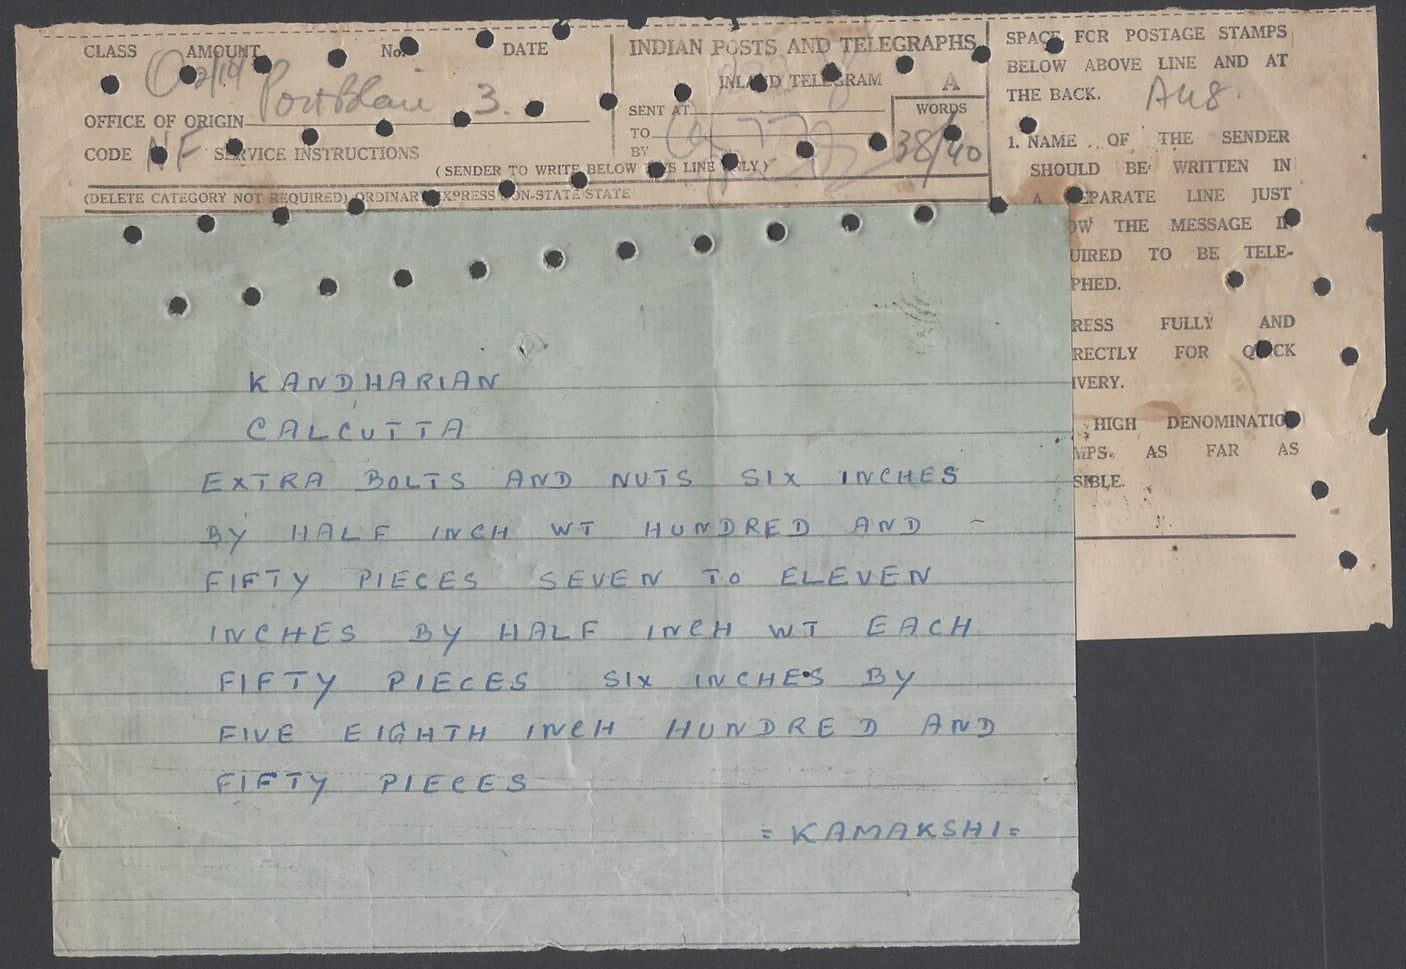 CLASS AMOUNT No. DATE
Port Blair 3.
OFFICE OF ORIGIN
CODE NF SERVICE INSTRUCTIONS
INDIAN POSTS AND TELEGRAPHS
INLAND TELEGRAM A
SENT AT
TO
BY
WORDS
38/40
(SENDER TO WRITE BELOW THIS LINE ONLY)
(DELETE CATEGORY NOT REQUIRED) ORDINARY EXPRESS NON-STATE STATE
SPACE FOR POSTAGE STAMPS
BELOW ABOVE LINE AND AT
THE BACK.
1. NAME OF THE SENDER
SHOULD BE WRITTEN IN
A SEPARATE LINE JUST
OW THE MESSAGE IF
UIRED TO BE TELE-
PHED.
RESS FULLY AND
RECTLY FOR QUICK
IVERY.
HIGH DENOMINATION
MPS. AS FAR AS
SIBLE.
KANDHARIAN
CALCUTTA
EXTRA BOLTS AND NUTS SIX INCHES
BY HALF INCH WT HUNDRED AND -
FIFTY PIECES SEVEN TO ELEVEN
INCHES BY HALF INCH WT EACH
FIFTY PIECES SIX INCHES BY
FIVE EIGHTH INCH HUNDRED AND
FIFTY PIECES
= KAMAKSHI =